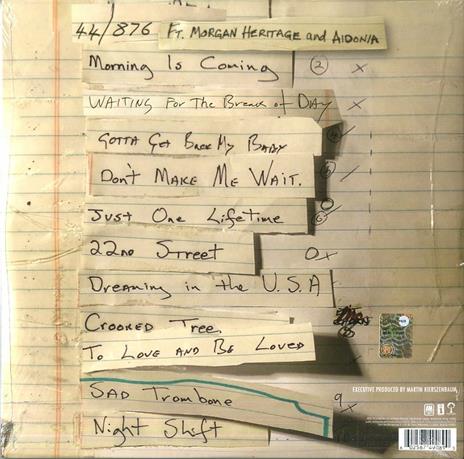 44/876 Ft. MORGAN HERITAGE and AIDONIA
Morning Is Coming 2 x
WAITING For The Break of DAY x
GOTTA GET BACK MY BABY
DON'T MAKE ME WAIT.
Just One Lifetime
22nd Street 0x
Dreaming in the U.S.A
CROOKED TREE.
TO LOVE AND BE LOVED
SAD Trombone 9
Night Shift x
EXECUTIVE PRODUCED BY MARTIN KIERSZENBAUM